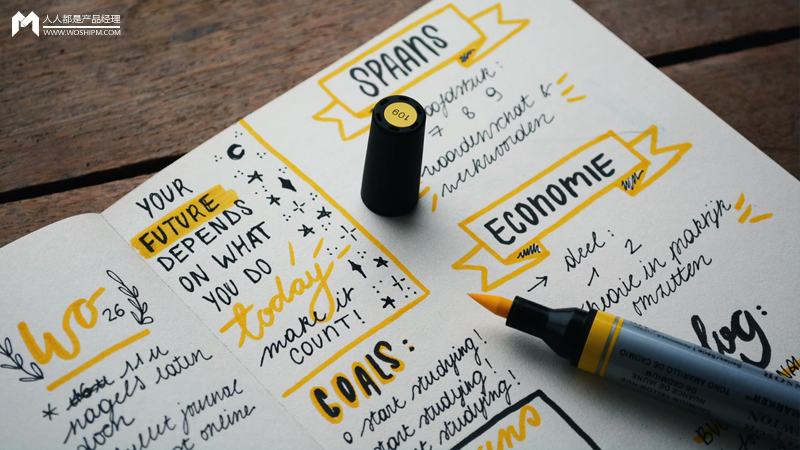 人人都是产品经理
WWW.WOSHIPM.COM
Wo
26
11 u
nagels laten
doch
bullet journal
online
YOUR
FUTURE
DEPENDS
ON WHAT
YOU DO
today
make it
COUNT!
GOALS:
start studying!
start studying!
studying!
SPAANS
hoofdstuk:
7 8 9
woordenschat &
werkwoorden
109
ECONOMIE
deel:
1 2
theorie in praktijk
omzetten
TONO AMARILLO DE CADMIO